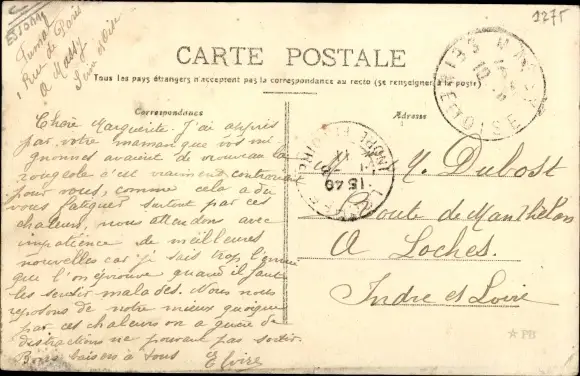 ESSONNE
1275
Tunal
1 Rue de Paris
A Massy
Seine et Oise
CARTE POSTALE
Tous les pays étrangers n'acceptent pas la correspondance au recto (se renseigner à la poste)
Correspondance
Chère Marguerite. J'ai appris
par votre maman que vos mi
gnonnes avaient de nouveau la
rougeole c'est vraiment contrariant
pour vous, comme cela a dû
vous fatiguer surtout par ces
chaleurs, nous attendons avec
impatience de meilleures
nouvelles car je sais trop l'ennui
que l'on éprouve quand il faut
les sentir malades. Nous nous
reposons de notre mieux quoique
par ces chaleurs on a guère de
distractions ne pouvant pas sortir.
Bons baisers à tous Elvire
Adresse
M. Dubost
Route de Manthelan
A Loches.
Indre et Loire
MASSY
SEINE-ET-OISE
LOCHES
INDRE-ET-LOIRE
15 40
PB